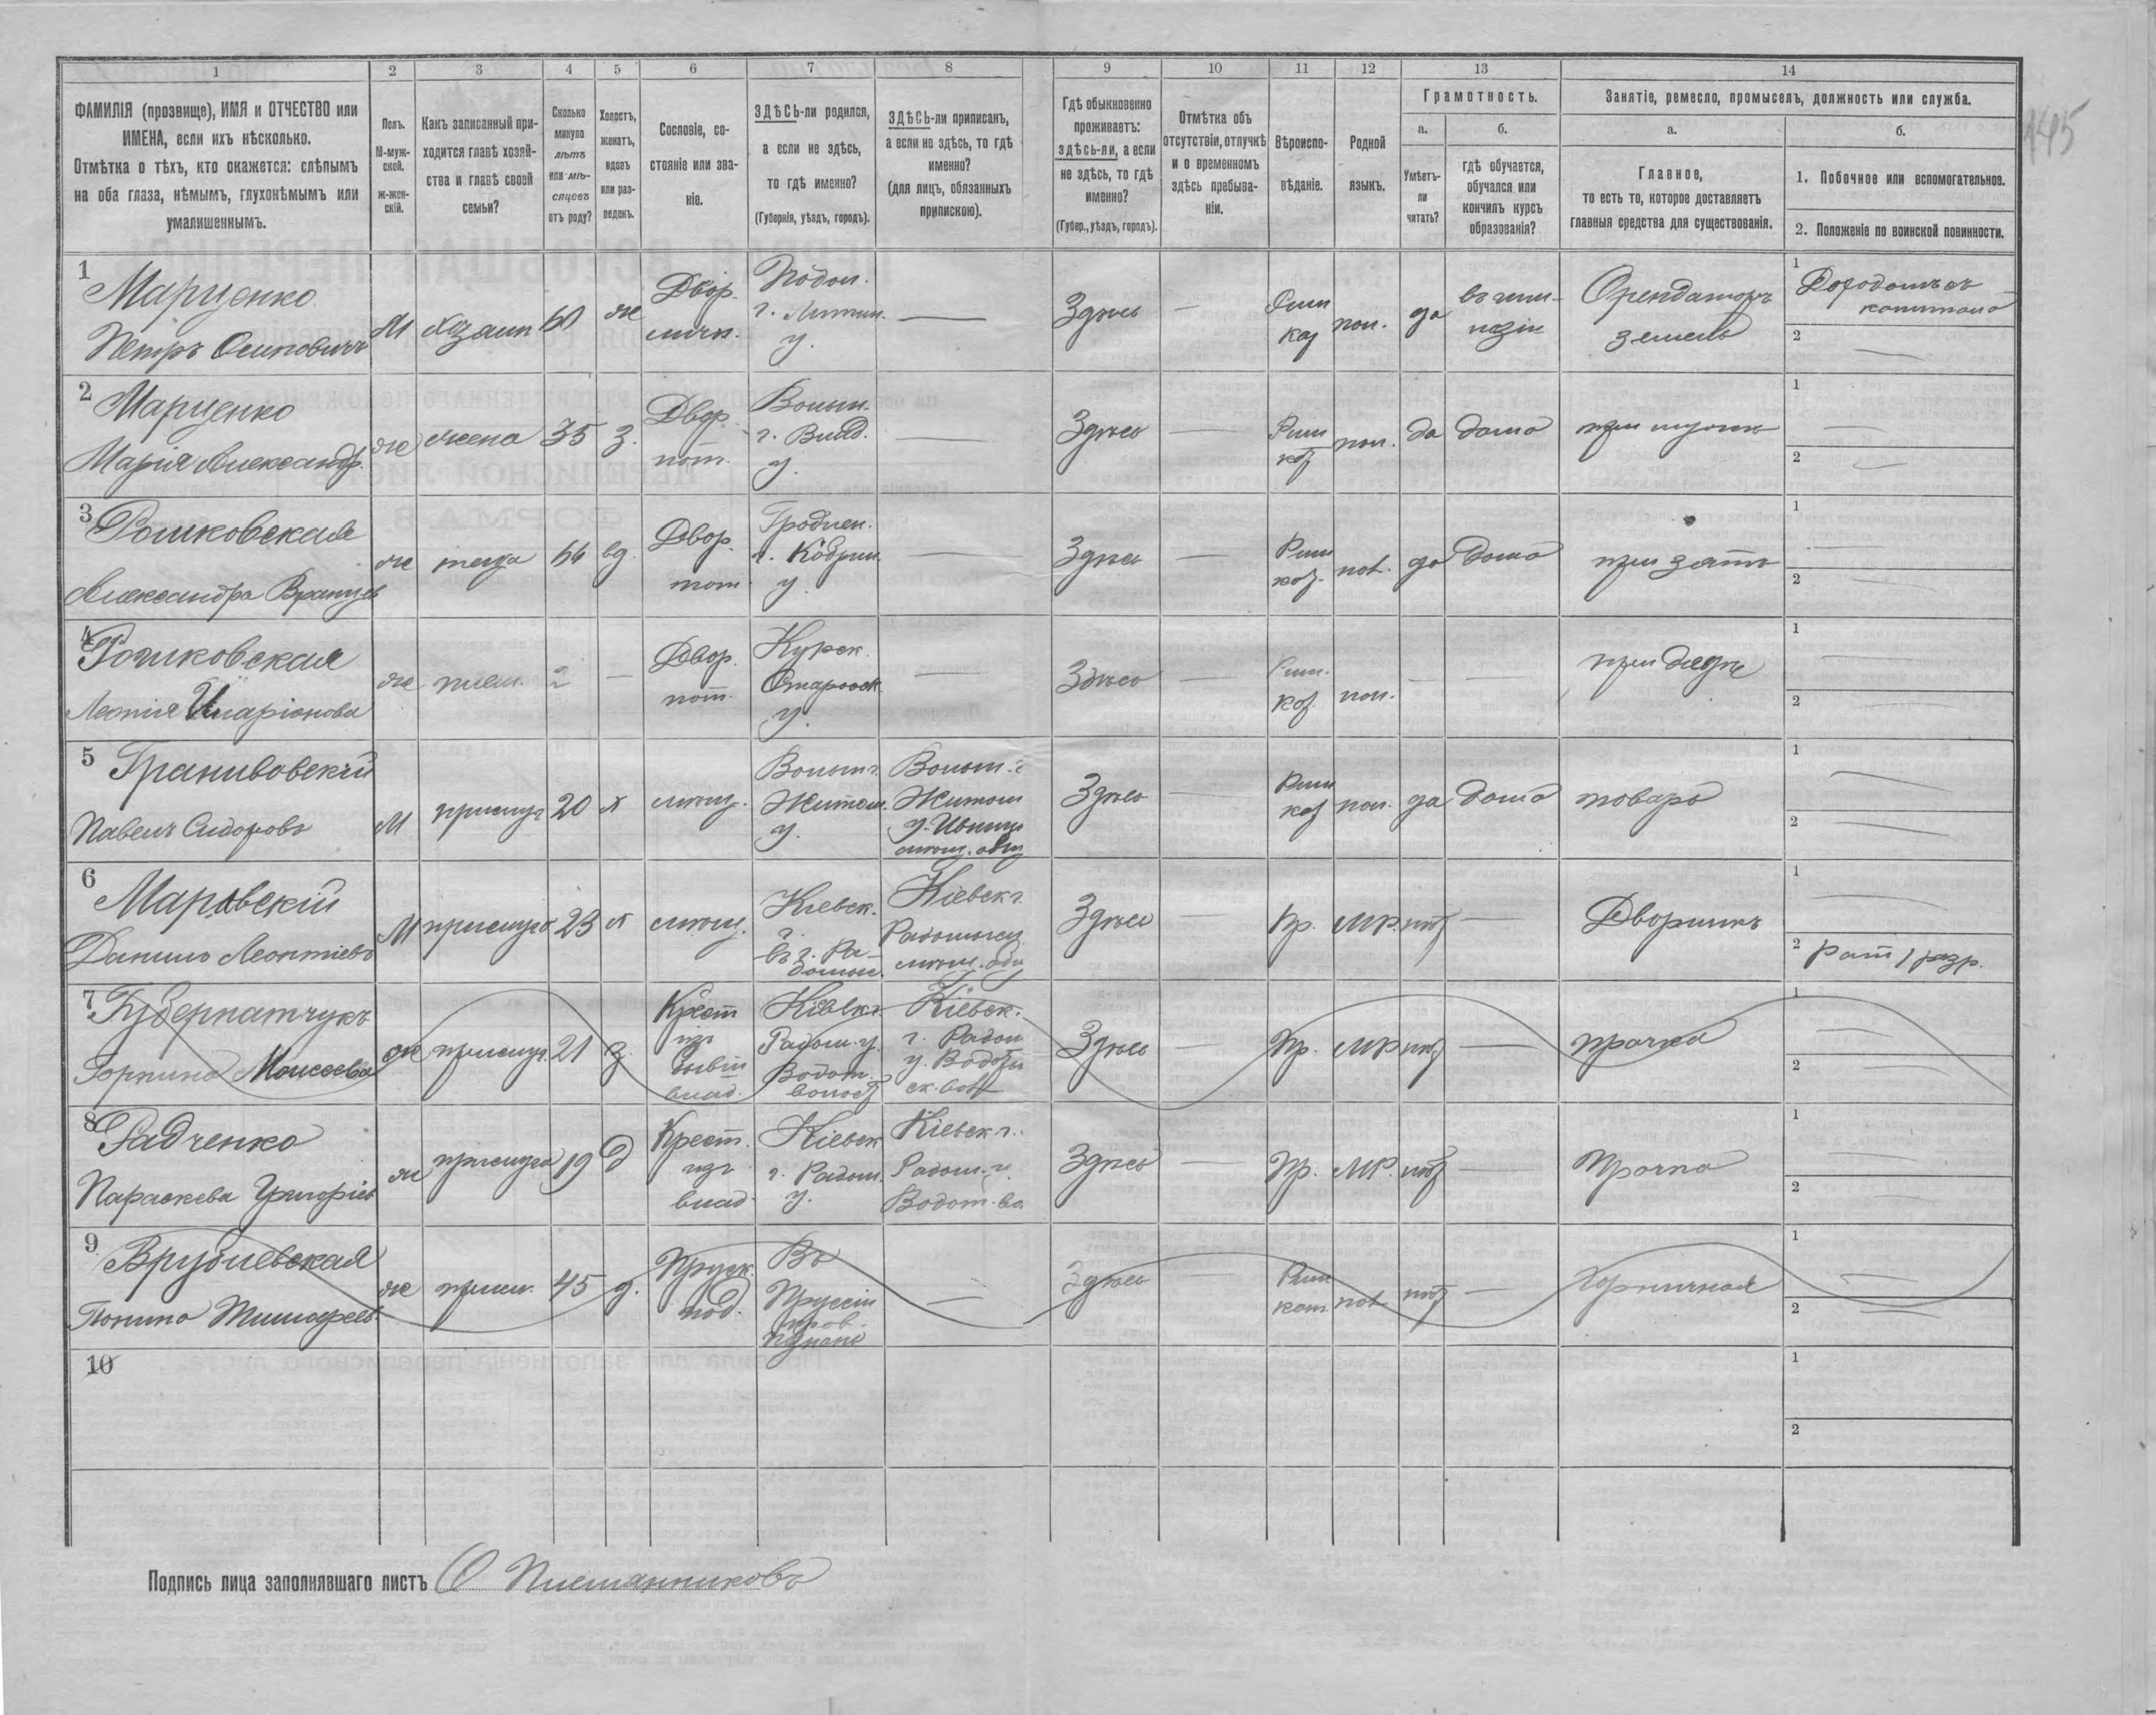 1 2 3 4 5 6 7 8 9 10 11 12 13 14
ФАМИЛІЯ (прозвище), ИМЯ и ОТЧЕСТВО или
ИМЕНА, если ихъ нѣсколько.
Отмѣтка о тѣхъ, кто окажется: слѣпымъ
на оба глаза, нѣмымъ, глухонѣмымъ или
умалишеннымъ.
Полъ.
М-муж-
ской.
Ж-жен-
скій.
Какъ записанный при-
ходится главѣ хозяй-
ства и главѣ своей
семьи?
Сколько
минуло
лѣтъ
или мѣ-
сяцевъ
отъ роду?
Холостъ,
женатъ,
вдовъ
или раз-
веденъ.
Сословіе, со-
стояніе или зва-
ніе.
ЗДѢСЬ-ли родился,
а если не здѣсь,
то гдѣ именно?
(Губернія, уѣздъ, городъ).
ЗДѢСЬ-ли приписанъ,
а если не здѣсь, то гдѣ
именно?
(для лицъ, обязанныхъ
припискою).
Гдѣ обыкновенно
проживаетъ:
здѣсь-ли, а если
не здѣсь, то гдѣ
именно?
(Губер., уѣздъ, городъ).
Отмѣтка объ
отсутствіи, отлучкѣ
и о временномъ
здѣсь пребыва-
ніи.
Вѣроиспо-
вѣданіе.
Родной
языкъ.
Грамотность.
а.
Умѣетъ-
ли
читать?
б.
гдѣ обучается,
обучался или
кончилъ курсъ
образованія?
Занятіе, ремесло, промыселъ, должность или служба.
а.
Главное,
то есть то, которое доставляетъ
главныя средства для существованія.
б.
1. Побочное или вспомогательное.
2. Положеніе по воинской повинности.
145
1
Марценко
Петръ Осиповичъ
М
хозаин
60
ж
Двор.
личн.
Подол.
г. Литин.
у.
Здѣсь
Рим
кат
пол.
да
въ гим-
назіи
Орендаторъ
земель
1
капитала
2
2
Марценко
Марія Александр.
ж
жена
35
з.
Двор.
пот.
Волын.
г. Влад.
у.
Здѣсь
Рим
кат
пол.
да
дома
при мужѣ
1
2
3
Рошковская
Александра
ж
теща
вд.
Двор.
пот
Гроднен.
г. Кобрин.
у.
Здѣсь
Рим
кат.
пол.
да
дома
при зятѣ
1
2
4
Рошковская
Леонія
ж
плем.
2
Двор.
пот.
Курск.
Староск.
у.
Здѣсь
Рим.
кат.
пол.
при дядѣ
1
2
5
Павелъ Сидоровъ
М
прислуг
20
х
мѣщ.
Волын г.
Житом.
у.
Волын. г
Житом
у. Ивниц
мѣщ. общ
Здѣсь
Рим
кат
пол.
да
дома
поваръ
1
2
6
Данило Леонтіевъ
М
прислуга
23
х
мѣщ.
Кіевск.
г.
въ г. Ра-
домыс.
Кіевск г.
Радомысл
мѣщ. общ
Здѣсь
Пр.
МР.
нѣт
Дворникъ
1
2 рат 1 разр.
7
Губернатчукъ
Горпина Моисеева
ж
прислуг.
21
з.
Крест
изъ
бывш
влад.
Кіевск г.
Радом. у.
Водот.
волост
Кіевск.
г. Радом
у.
Здѣсь
Пр.
МР
нѣт.
прачка
1
2
8
Радченко
Параскева Григоріев
ж
прислуга
19
д
Крест.
изъ
влад
Кіевск
г. Радом.
у.
Кіевск г.
Радом. у.
Водот. во.
Здѣсь
Пр.
МР.
нѣт
Прачка
1
2
9
Врублевская
ж
присл.
45
д.
Пруск.
под.
Въ
Пруссіи
пров.
Познань
Здѣсь
Рим
кат
пол
нѣт
Горничная
1
2
10
1
2
Подпись лица заполнявшаго листъ